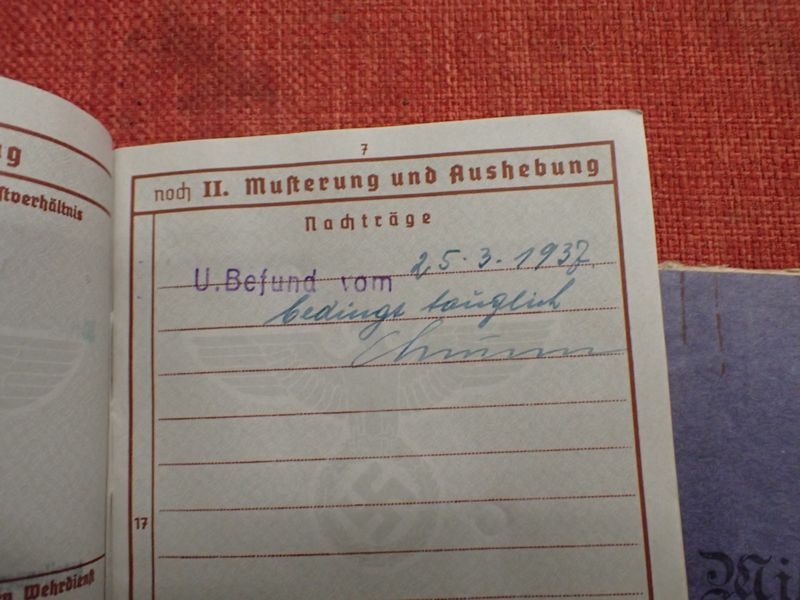 ng
stverhältnis
n Wehrdienst
7
noch II. Musterung und Aushebung
Nachträge
U. Befund vom 25.3.1937
bedingt tauglich
17
Mi